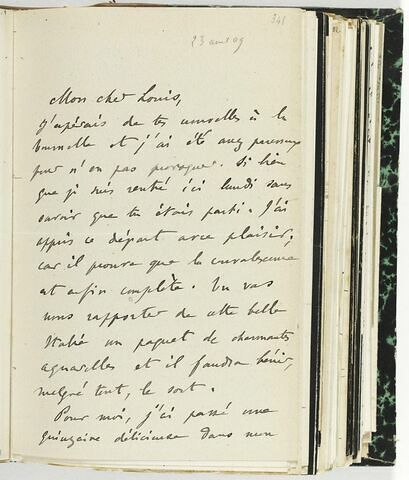 341
23 avril 09
Mon cher Louis,
J'espérais de tes nouvelles à la
Tournelle et j'ai été assez paresseux
pour n'en pas provoquer. Si bien
que je suis rentré ici lundi sans
savoir que tu étais parti. J'ai
appris ce départ avec plaisir,
car il prouve que la convalescence
est enfin complète. Tu vas
nous rapporter de cette belle
Italie un paquet de charmantes
aquarelles et il faudra bénir,
malgré tout, le sort.
Pour moi, j'ai passé une
quinzaine délicieuse dans mon